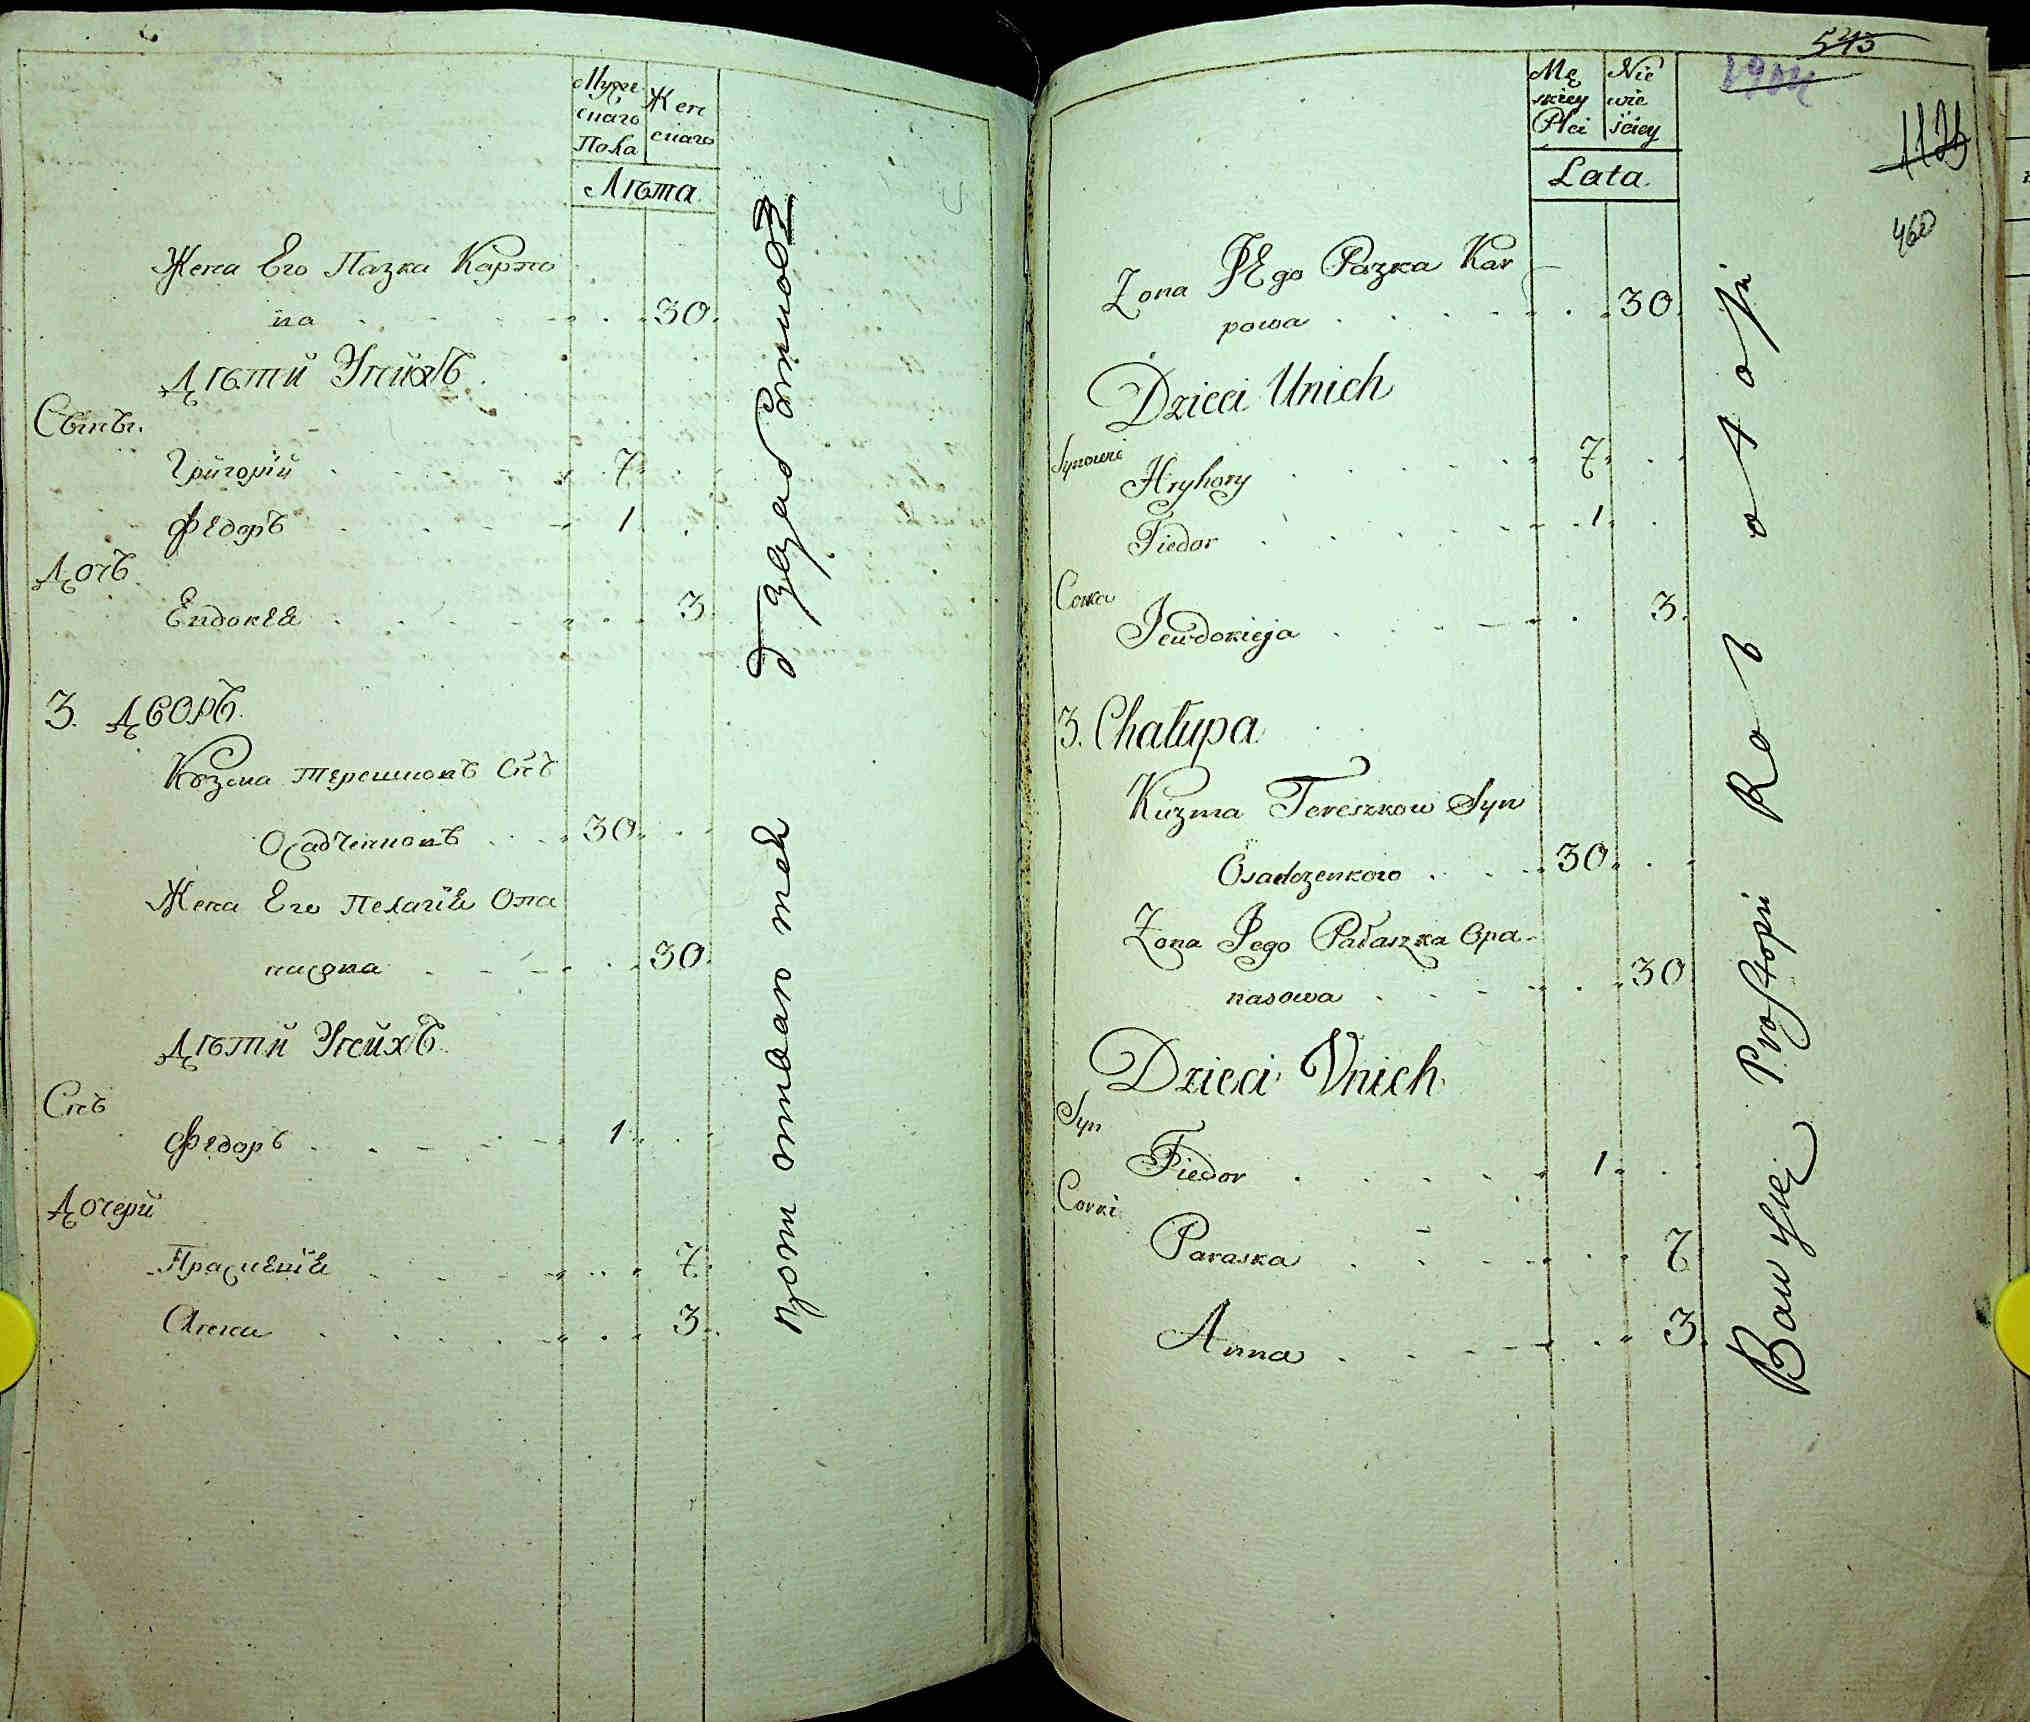 Мужескаго Пола
Женскаго
Лѣта
Жена Его Пазка Карпо
ва 30
Дѣти Унихъ
Сыны
Григорій 7
Федоръ 1
Дочь
Евдокея 3
3. Дворъ
Кузма Терешковъ Снъ
Осадченковъ 30
Жена Его Пелагія Опа
насова 30
Дѣти Унихъ
Снъ
Федоръ 1
Дочери
Прасковія 7
Анна 3
545
1126
460
Męskiey Płci
Niewieściey
Lata
Zona JEgo Pazka Kar
powa 30
Dzieci Unich
Synowie
Hryhory 7
Fiedor 1
Corka
Jewdokieja 3
3. Chałupa
Kuzma Tereszkow Syn
Osadczenkoto 30
Zona Jego Pałaszka Opa-
nasowa 30
Dzieci Vnich
Syn
Fiedor 1
Corki
Paraska 7
Anna 3